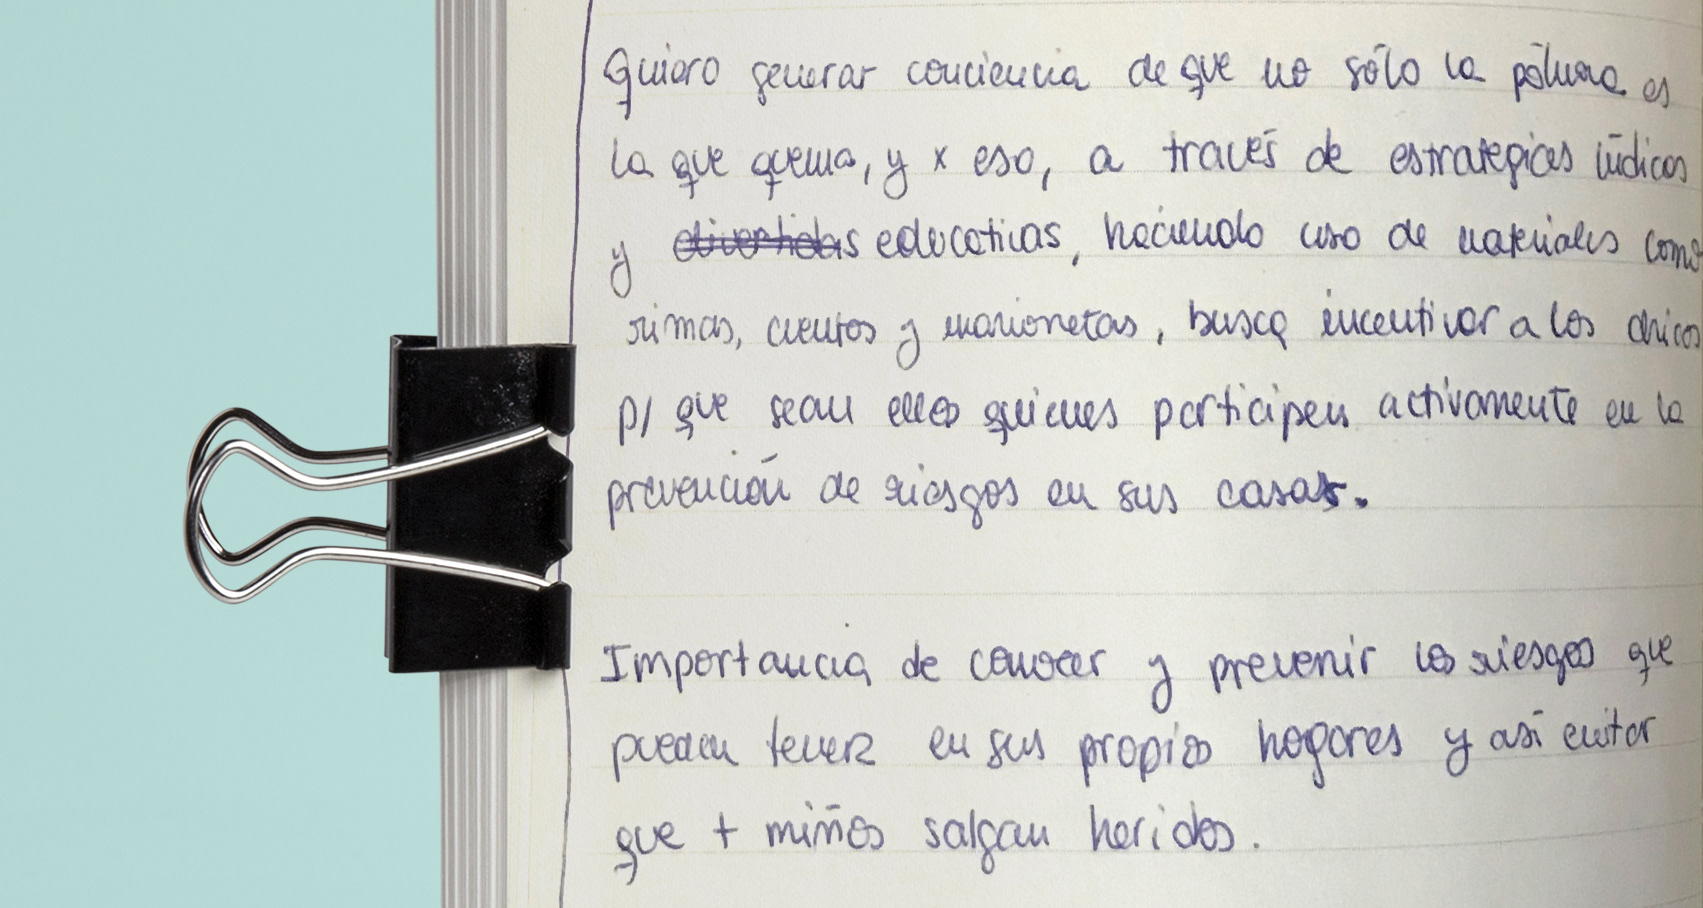 Quiero generar conciencia de que no sólo la pólvora es
la que quema, y x eso, a través de estrategias lúdicas
y divertidas educativas, haciendo uso de materiales como
rimas, cuentos y marionetas, busca incentivar a los chicos
p/ que sean ellos quienes participen activamente en la
prevención de riesgos en sus casas.
Importancia de conocer y prevenir los riesgos que
pueden tener en sus propios hogares y así evitar
que + niños salgan heridos.